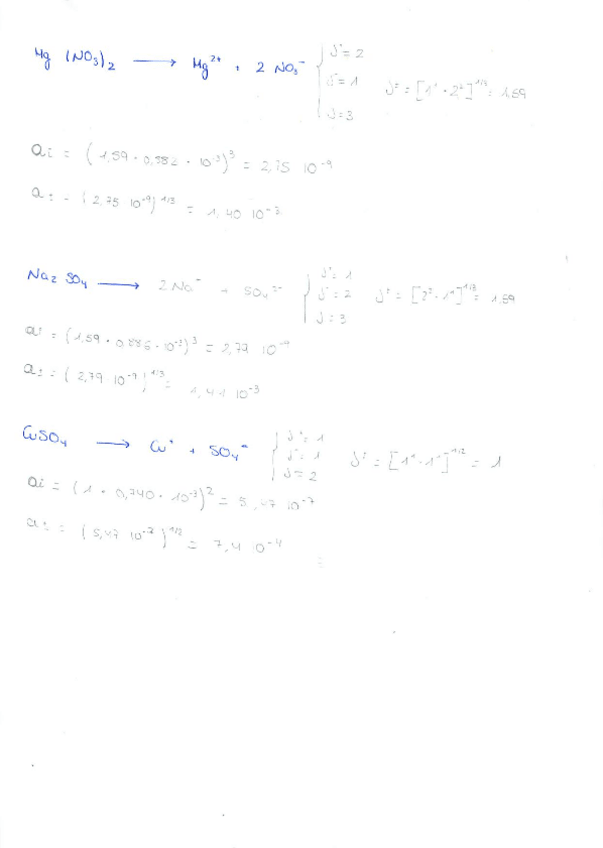 Mg (NO3)2 → Mg2+ + 2 NO3- { J+ = 2
J- = 1 J± = [1¹ · 2²]^1/3 = 1,59
J = 3
ai = (1,59 · 0,882 · 10-3)3 = 2,75 10-9
a± = (2,75 10-9)1/3 = 1,40 10-3
Na2 SO4 → 2 Na+ + SO4 2- { J+ = 1
J- = 2 J± = [2² · 1¹]^1/3 = 1,59
J = 3
ai = (1,59 · 0,886 · 10-3)3 = 2,79 10-9
a± = (2,79 10-9)1/3 = 1,41 10-3
CuSO4 → Cu+ + SO4= { J+ = 1
J- = 1 J± = [1¹ · 1¹]^1/2 = 1
J = 2
ai = (1 · 0,740 · 10-3)2 = 5,47 10-7
a± = (5,47 10-7)1/2 = 7,4 10-4